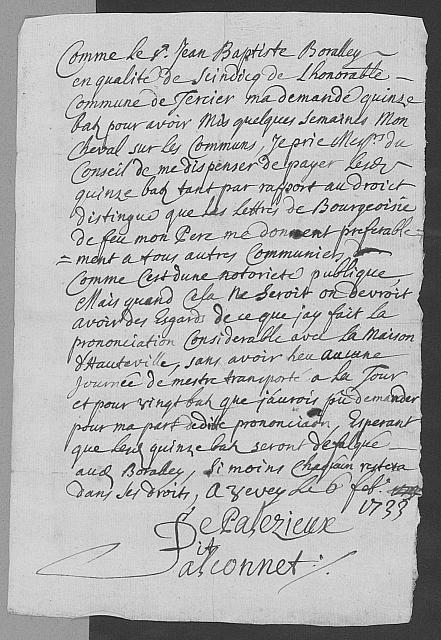 Comme le Sr. Jean Baptiste Boralley
en qualité de Scindicq de Lhonorable
Commune de Tercier ma demandé quinze
batz pour avoir Mis quelques semaines Mon
Cheval sur les Communs, Je prie Messrs. du
Conseil de me dispenser de payer Lesd.
quinze batz tant par rapport au droict
distingué que les Lettres de Bourgeoisie
de feu mon Pere me donnent preferable=
=ment a tous autres Communiers
Comme C'est d'une notorieté publique
Mais quand Cela Ne Seroit on devroit
avoir des Esgards de ce que jay fait la
prononciation Considerable avec la Maison
d'Hauteville, sans avoir heu aucune
Journée de mestre transporté a la Tour
et pour vingt batz que j'aurois pû demander
pour ma part de dite prononciaon, Esperant
que lesd. quinze batz seront defalqué
aud. Boralley, Si moins Chaquun restera
dans ses droits, A Vevey Le 6 feb.
1733
De Palezieux
dit
Falconnet